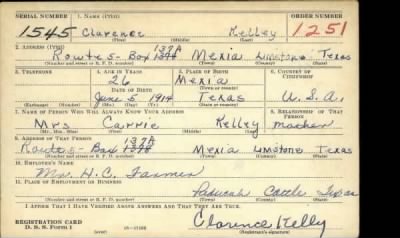 SERIAL NUMBER 1. NAME (Print) ORDER NUMBER
1545 Clarence Kelley 1251
(First) (Middle) (Last)
2. ADDRESS (Print)
137A
Route 5- Box Mexia Limstone Texas
(Number and street or R. F. D. number) (Town) (County) (State)
3. TELEPHONE 4. AGE IN YEARS 5. PLACE OF BIRTH 6. COUNTRY OF CITIZENSHIP
26 Mexia
DATE OF BIRTH (Town or county)
June 5 1914 Texas U.S.A.
(Exchange) (Number) (Mo.) (Day) (Yr.) (State or country)
7. NAME OF PERSON WHO WILL ALWAYS KNOW YOUR ADDRESS 8. RELATIONSHIP OF THAT PERSON
Mrs Carrie Kelley mother
(Mr., Mrs., Miss) (First) (Middle) (Last)
9. ADDRESS OF THAT PERSON
137A
Route 5- Box Mexia Limstone Texas
(Number and street or R. F. D. number) (Town) (County) (State)
10. EMPLOYER'S NAME
Mr. H.C. Farmer
11. PLACE OF EMPLOYMENT OR BUSINESS
Paducah Cottle Texas
(Number and street or R. F. D. number) (Town) (County) (State)
I AFFIRM THAT I HAVE VERIFIED ABOVE ANSWERS AND THAT THEY ARE TRUE.
REGISTRATION CARD
D. S. S. FORM 1 (over) Clarence Kelly
(Registrant's signature)